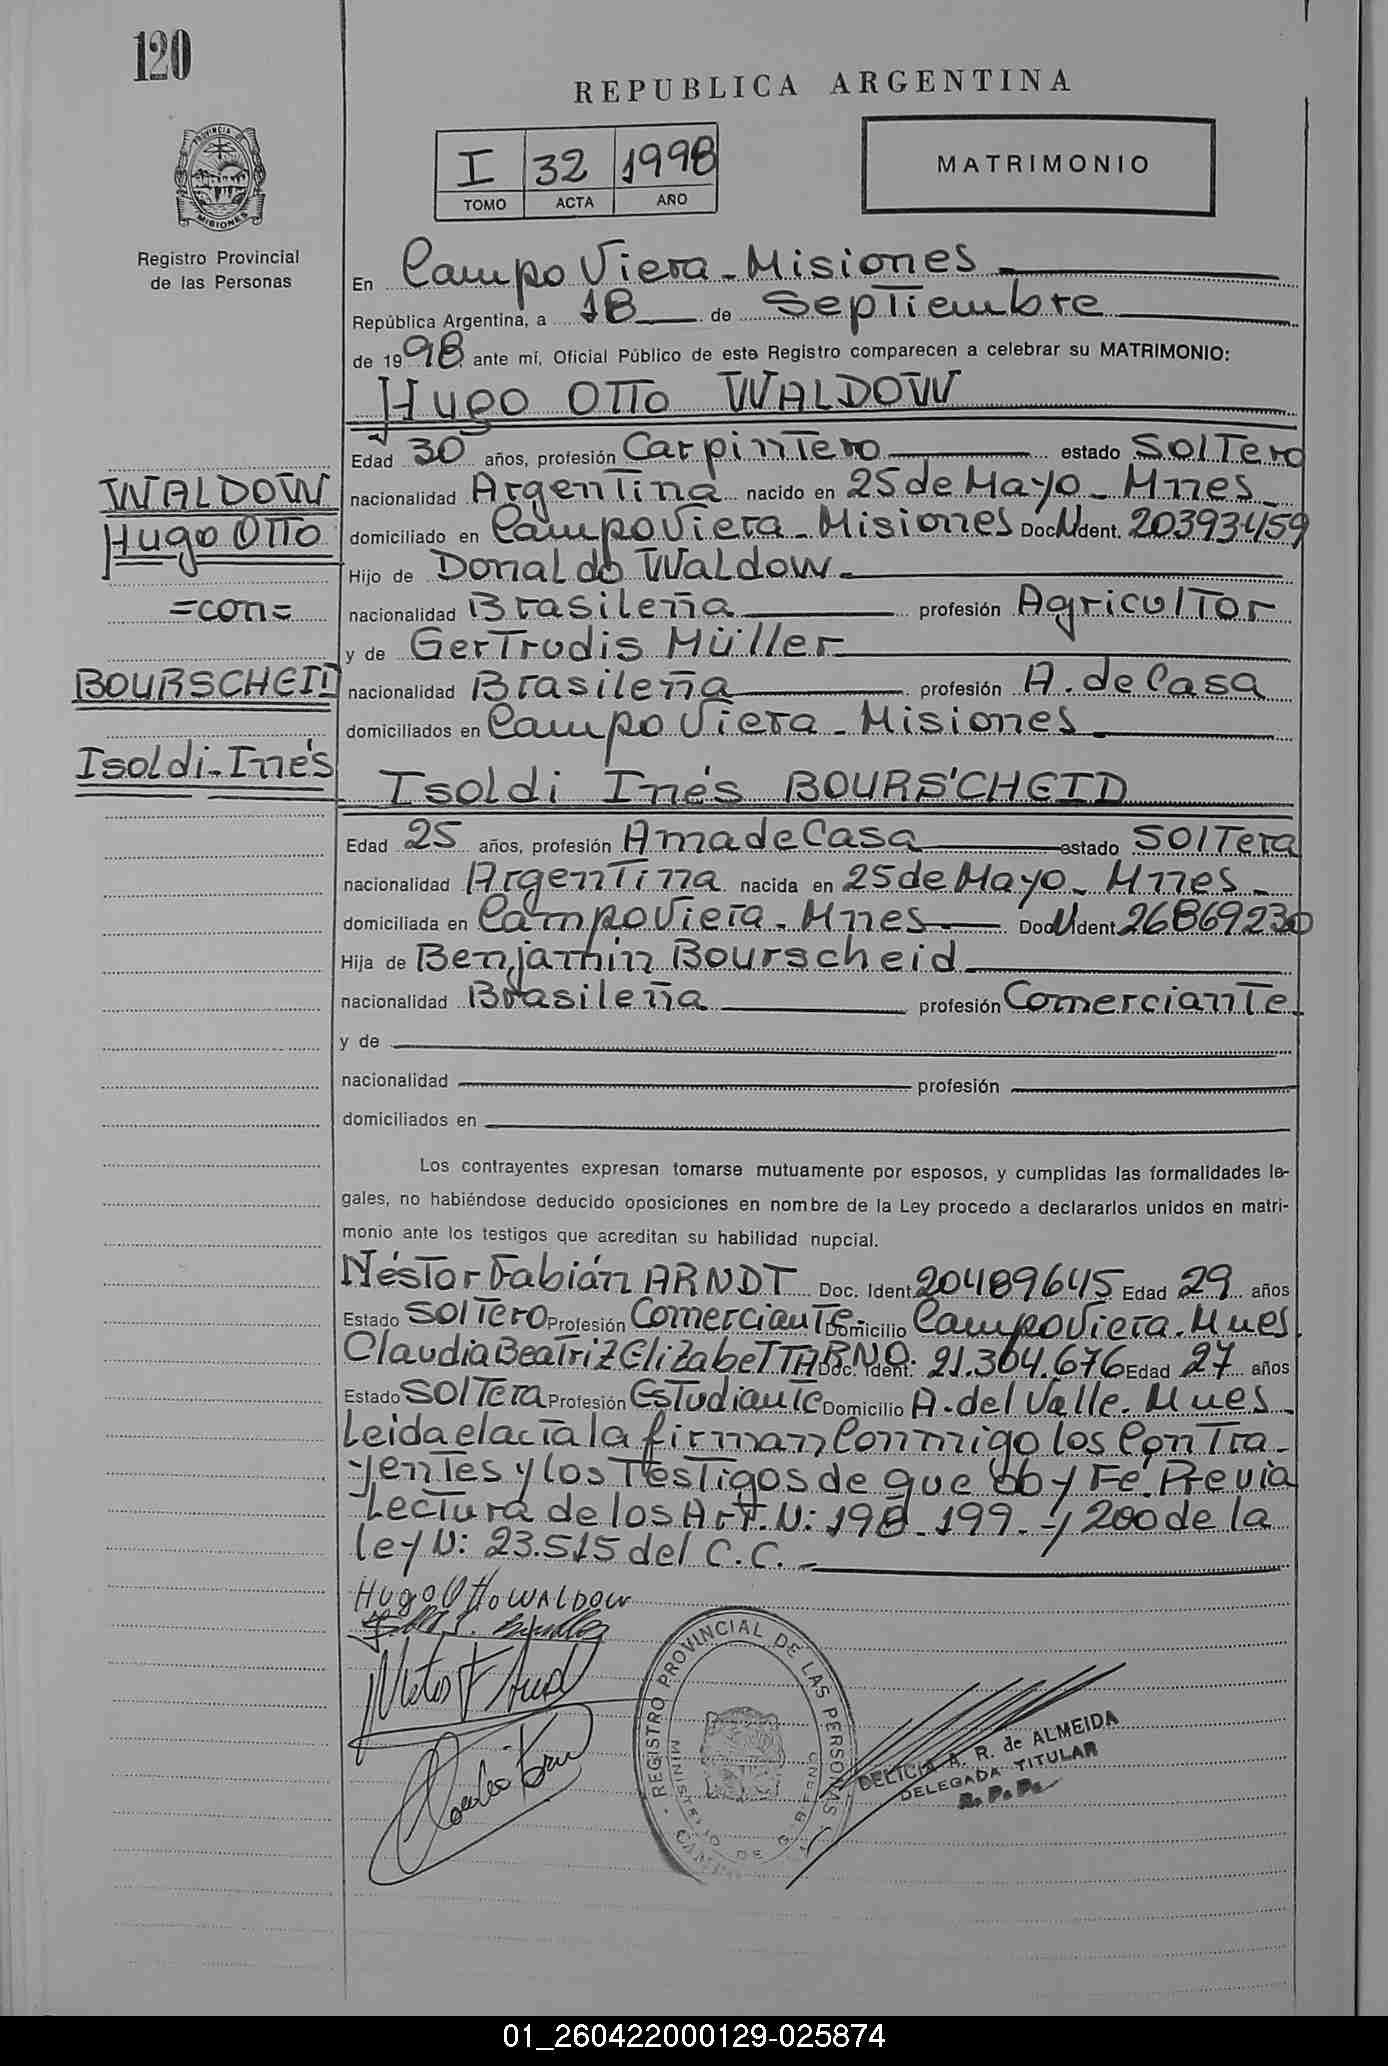 120
REPUBLICA ARGENTINA
I 32 1998
TOMO ACTA AÑO
MATRIMONIO
PROVINCIA DE
MISIONES
Registro Provincial
de las Personas
En Campo Viera - Misiones
República Argentina, a 18 de Septiembre
de 1998 ante mí, Oficial Público de este Registro comparecen a celebrar su MATRIMONIO:
Hugo Otto WALDOW
Edad 30 años, profesión Carpintero estado Soltero
nacionalidad Argentina nacido en 25 de Mayo - Mnes
domiciliado en Campo Viera - Misiones Doc. Ident. 20393459
Hijo de Donaldo Waldow
nacionalidad Brasileña profesión Agricultor
y de Gertrudis Müller
nacionalidad Brasileña profesión A. de Casa
domiciliados en Campo Viera - Misiones
WALDOW
Hugo Otto
=con=
BOURSCHEID
Isoldi-Inés
Isoldi Inés BOURSCHEID
Edad 25 años, profesión Ama de Casa estado Soltera
nacionalidad Argentina nacida en 25 de Mayo - Mnes -
domiciliada en Campo Viera - Mnes Doc. Ident 26869230
Hija de Benjamin Bourscheid
nacionalidad Brasileña profesión Comerciante
y de
nacionalidad profesión
domiciliados en
Los contrayentes expresan tomarse mutuamente por esposos, y cumplidas las formalidades le-
gales, no habiéndose deducido oposiciones en nombre de la Ley procedo a declararlos unidos en matri-
monio ante los testigos que acreditan su habilidad nupcial.
Néstor Fabián ARNDT Doc. Ident. 20489645 Edad 29 años
Estado Soltero Profesión Comerciante Domicilio Campo Viera. Mnes
Claudia Beatriz Elizabet TARNO Doc. Ident. 21.304.676 Edad 27 años
Estado Soltera Profesión Estudiante Domicilio A. del Valle. Mnes
Leida el acta la firman Conmigo los Contra-
yentes y los Testigos de que doy Fe. Previa
Lectura de los Art. N: 198 - 199 - y 200 de la
ley N: 23.515 del C.C. -
Hugo Otto WALDOW
REGISTRO PROVINCIAL DE LAS PERSONAS
DELICIA A. R. de ALMEIDA
DELEGADA TITULAR
R. P. P.
01_260422000129-025874